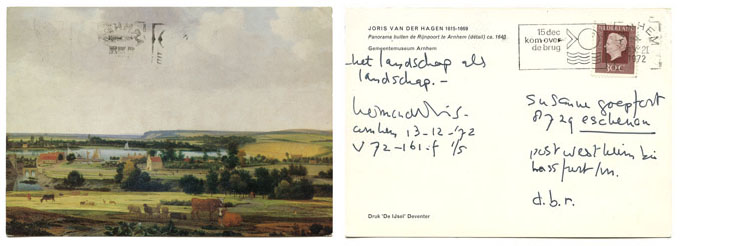 JORIS VAN DER HAGEN 1615-1669
Panorama buiten de Rijnpoort te Arnhem (détail) ca. 1649.
Gemeentemuseum Arnhem
15 dec
kom over
de brug
NEDERLAND
30 c
1972
het landschap als
landschap.-
arnhem 13-12-'72
V 72-161-f 1/5
susanne goepfert
8729 eschenau
post westheim bei
hassfurt/m.
d.b.r.
Druk 'De IJsel' Deventer